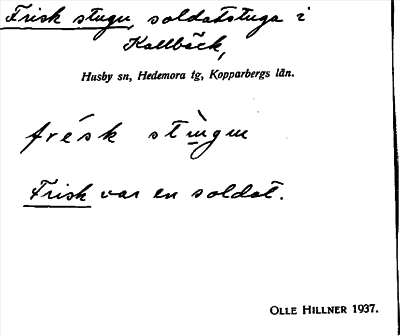 Frisk stugu, soldatstuga i
Kallbäck,
Husby sn, Hedemora tg, Kopparbergs län.
frésk stùgu
Frisk var en soldat.
OLLE HILLNER 1937.